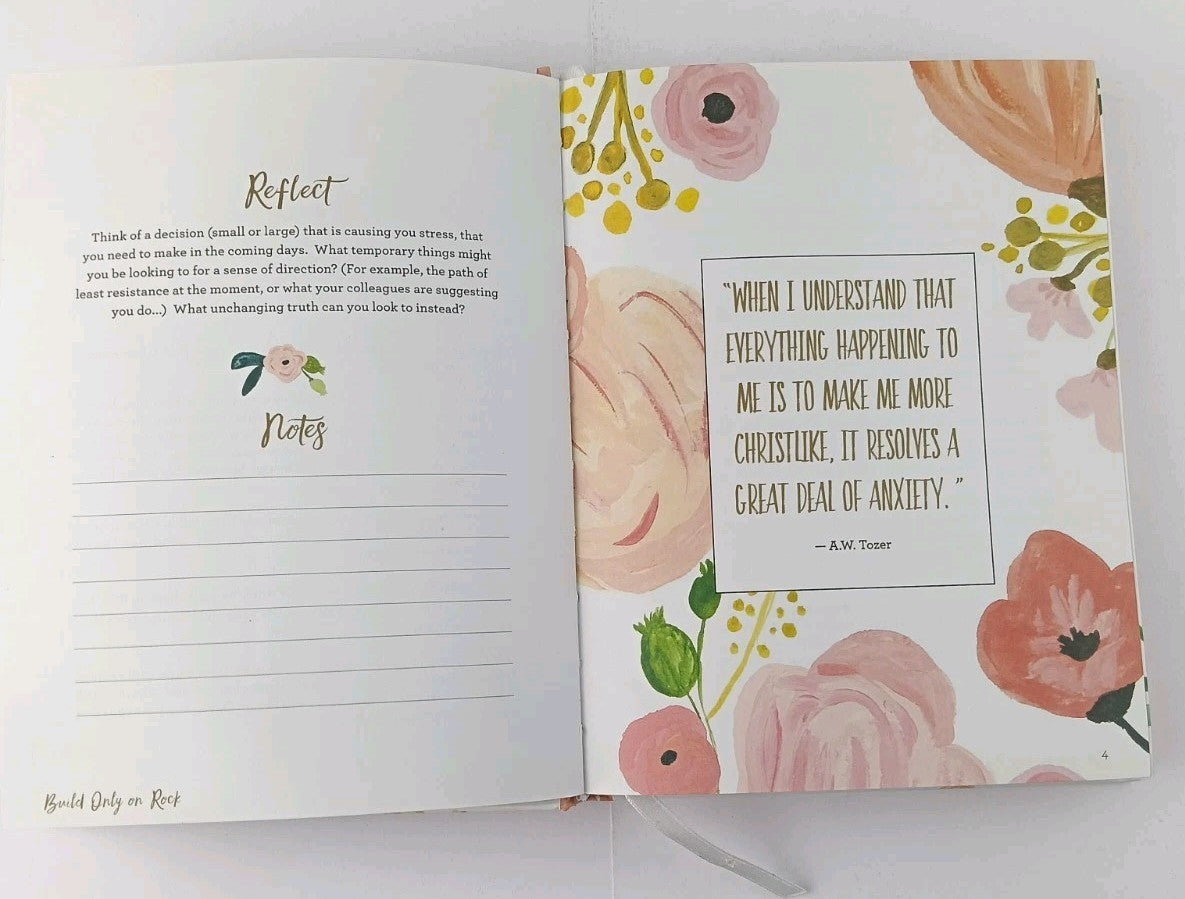 Reflect
Think of a decision (small or large) that is causing you stress, that
you need to make in the coming days. What temporary things might
you be looking to for a sense of direction? (For example, the path of
least resistance at the moment, or what your colleagues are suggesting
you do...) What unchanging truth can you look to instead?
Notes
Build Only on Rock
“WHEN I UNDERSTAND THAT
EVERYTHING HAPPENING TO
ME IS TO MAKE ME MORE
CHRISTLIKE, IT RESOLVES A
GREAT DEAL OF ANXIETY.”
— A.W. Tozer
4